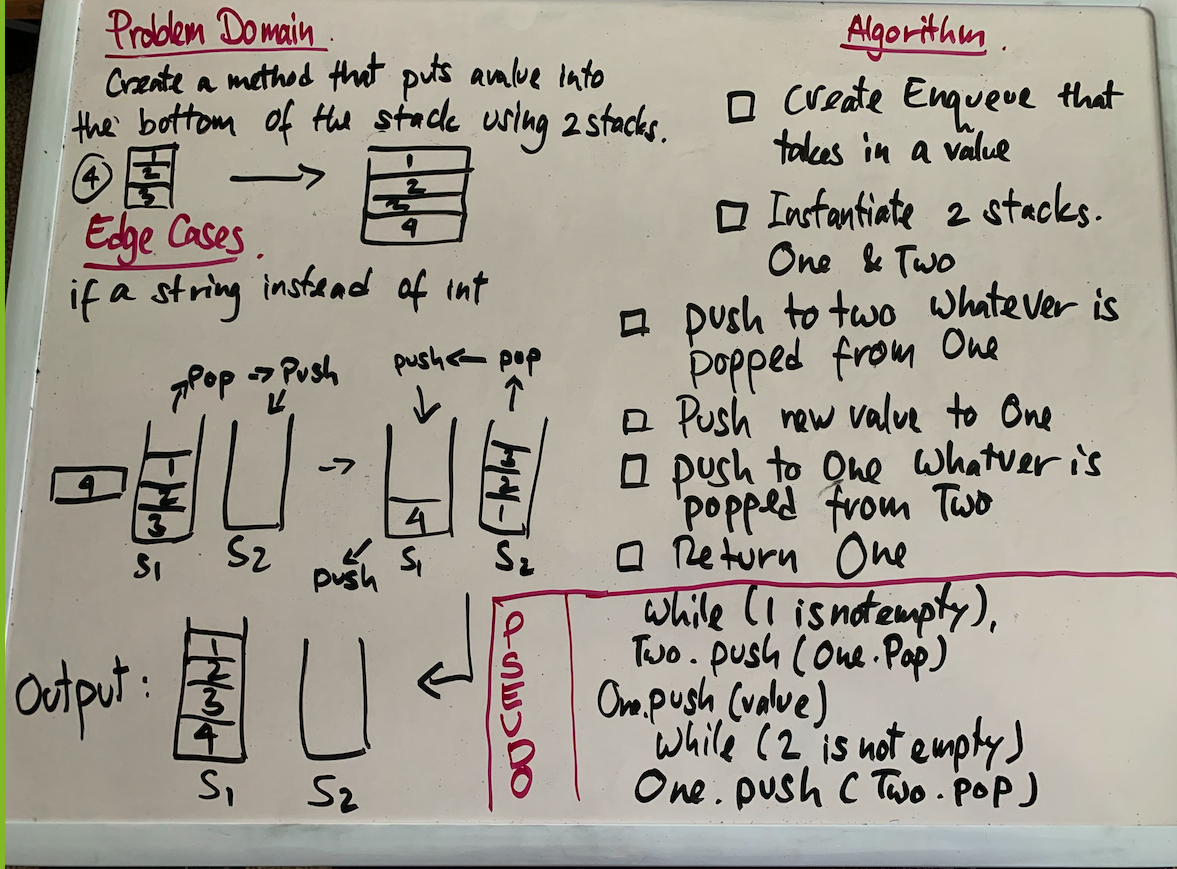 Problem Domain.
Create a method that puts avalue into
the bottom of the stack using 2 stacks.
4
1
2
3
1
2
3
4
Edge Cases.
if a string instead of int
Pop -> Push
push <- pop
4
1
2
3
->
4
3
2
1
S1
S2
push
S1
S2
Output:
1
2
3
4
S1
S2
Algorithm.
Create Enqueue that
takes in a value
Instantiate 2 stacks.
One & Two
push to two whatever is
popped from One
Push new value to One
push to One whatver is
popped from Two
Return One
PSEUDO
while (1 is not empty),
Two.push (One.Pop)
One.push (value)
while (2 is not empty)
One.push (Two.pop)